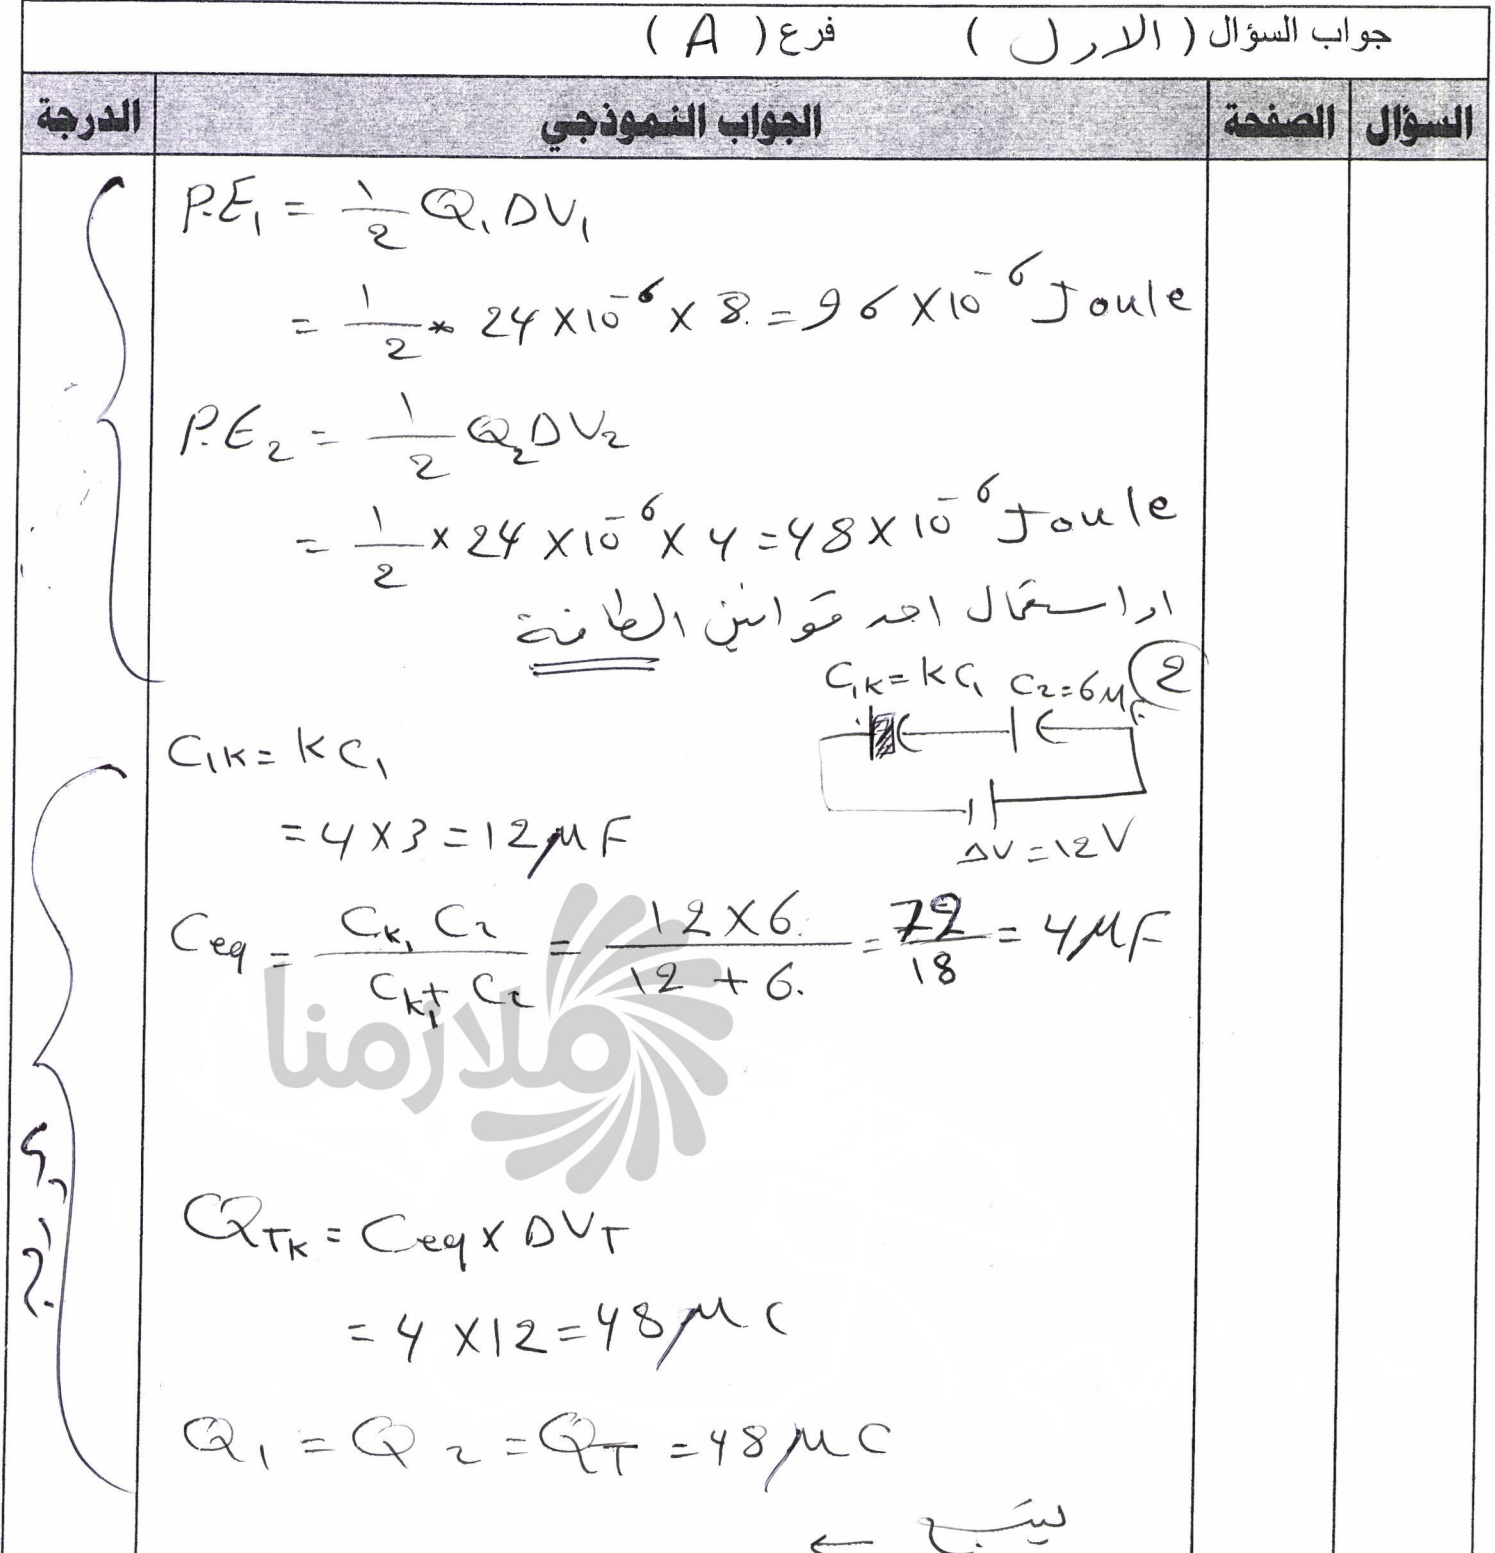 جواب السؤال ( الاول ) فرع ( A )
السؤال الصفحة الجواب النموذجي الدرجة
P.E₁ = 1/2 Q₁ ΔV₁
= 1/2 * 24 × 10⁻⁶ × 8 = 96 × 10⁻⁶ Joule
P.E₂ = 1/2 Q₂ ΔV₂
= 1/2 × 24 × 10⁻⁶ × 4 = 48 × 10⁻⁶ Joule
او استعمال احد قوانين الطاقة
2
C₁ₖ = kC₁ C₂ = 6μF
ΔV = 12V
C₁ₖ = kC₁
= 4 × 3 = 12 μF
Ceq = Cₖ₁ C₂ / Cₖ₁ + C₂ = 12 × 6 / 12 + 6 = 72/18 = 4 μF
ملازمنا
Q_TK = Ceq × ΔV_T
= 4 × 12 = 48 μC
Q₁ = Q₂ = Q_T = 48 μC
يتبع ←